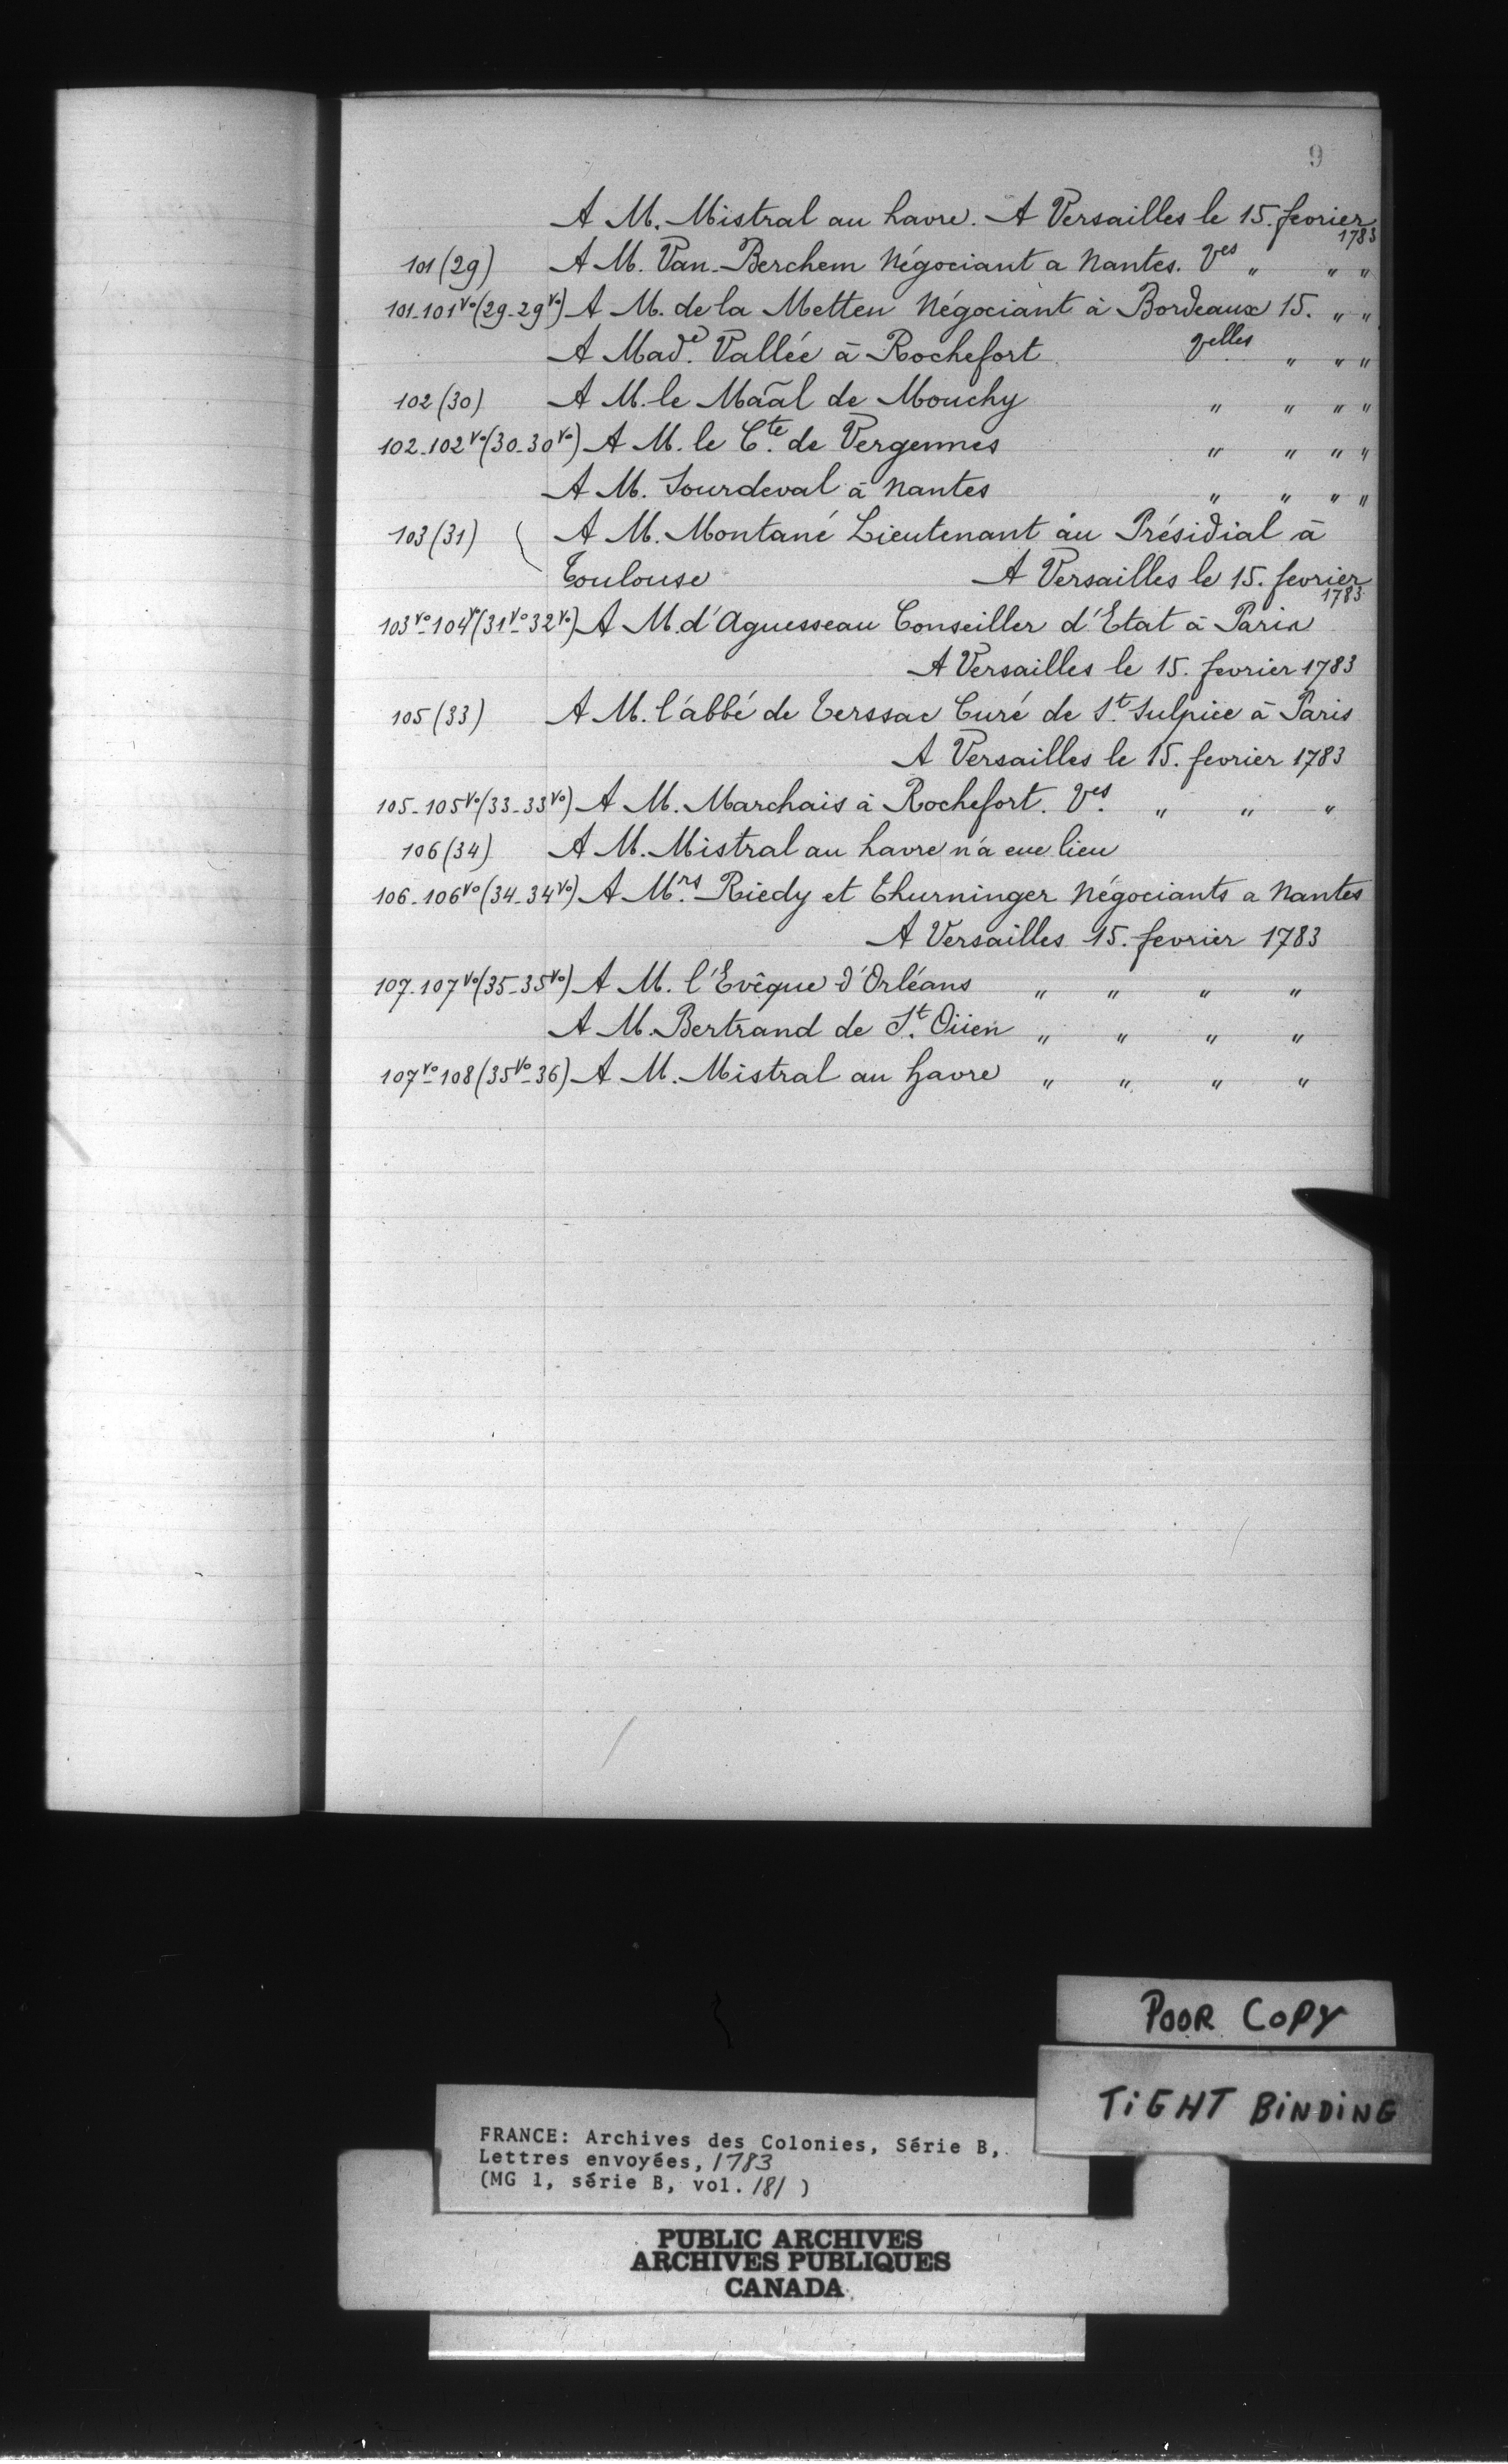 9
A M. Mistral au havre. A Versailles le 15. fevrier 1783
101 (29) A M. Van-Berchem Négociant a Nantes. Ves „ „ „
101-101vo (29-29vo) A M. de la Metten Négociant à Bordeaux 15. „ „
A Made. Vallée à Rochefort Velles „ „ „
102 (30) A M. le Maãl de Mouchy „ „ „ „
102-102vo (30-30vo) A M. le Cte. de Vergennes „ „ „ „
A M. Sourdeval à Nantes „ „ „ „
103 (31) ( A M. Montané Lieutenant au Présidial à
Toulouse A Versailles le 15. fevrier 1783
103vo-104vo (31vo-32vo) A M. d'Aguesseau Conseiller d'Etat à Paris
A Versailles le 15. fevrier 1783
105 (33) A M. l'abbé de Terssac Curé de St. Sulpice à Paris
A Versailles le 15. fevrier 1783
105-105vo (33-33vo) A M. Marchais à Rochefort. Ves. „ „ „
106 (34) A M. Mistral au havre n'a eue lieu
106-106vo (34-34vo) A Mrs. Riedy et Thurninger Négociants a Nantes
A Versailles 15. fevrier 1783
107-107vo (35-35vo) A M. l'Evêque d'Orléans „ „ „ „
A M. Bertrand de St. Oüen „ „ „ „
107vo-108 (35vo-36) A M. Mistral au havre „ „ „ „
POOR COPY
TIGHT BINDING
FRANCE: Archives des Colonies, Série B,
Lettres envoyées, 1783
(MG 1, série B, vol. 181 )
PUBLIC ARCHIVES
ARCHIVES PUBLIQUES
CANADA